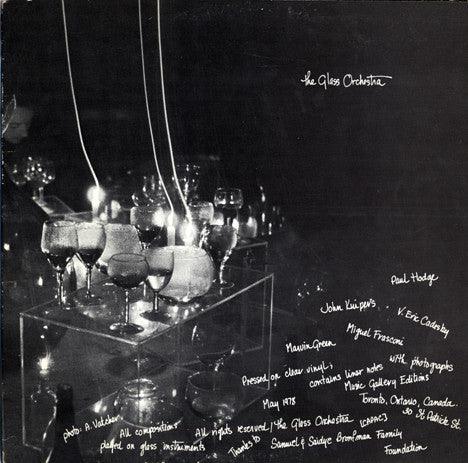 the Glass Orchestra
Paul Hodge
John Kuipers
V. Eric Cadesky
Miguel Frasconi
Marvin Green
with photographs
Pressed on clear vinyl;
contains liner notes
Music Gallery Editions
May 1978
Toronto, Ontario, Canada.
30 St Patrick St.
photo: A. Vatcher
All compositions
played on glass instruments
All rights reserved / the Glass Orchestra [CAPAC]
Thanks to
Samuel & Saidye Bronfman Family
Foundation